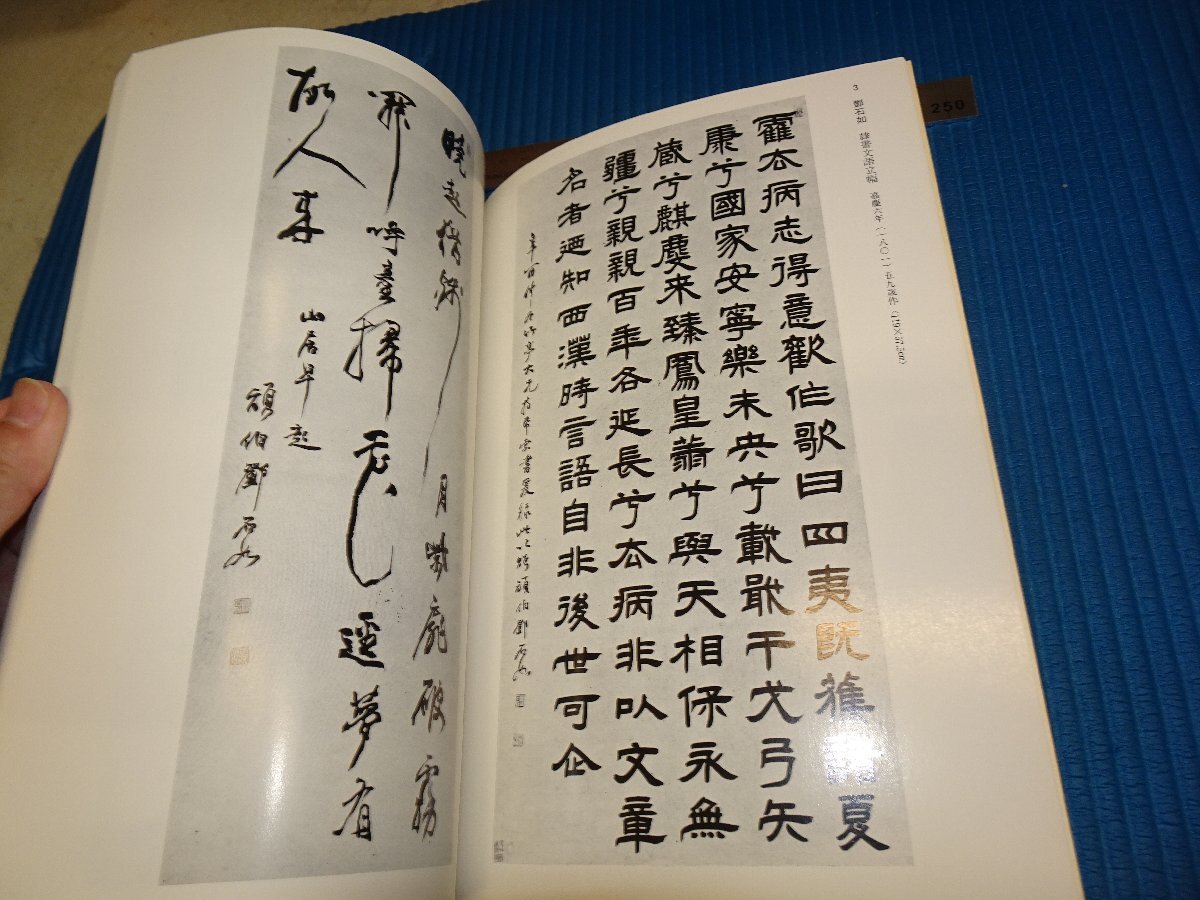 3 鄧石如 隷書文語立幅 嘉慶六年(一八〇一)五九歳作 (119×37.5㎝)
霍去病志得意歡作歌曰四夷既獲諸夏
康兮國家安寧樂未央兮載戢干戈弓矢
藏兮麒麐來臻鳳皇翔兮與天相保永無
疆兮親親百年各延長兮去病非以文章
名者迺知西漢時言語自非後世可企
竹亭大兄 書爰 此以 頑伯鄧石如
曉起猶殘月 破霧
呼童掃花逕夢有
故人来
山居早起
頑伯鄧石如
250